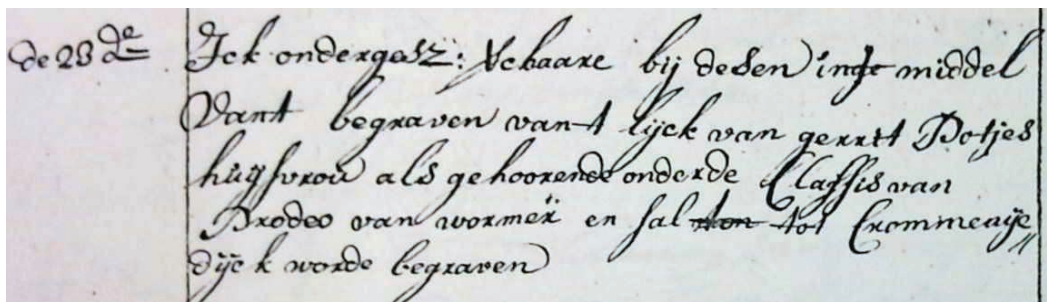 de 28 de Ick ondergesz: verklaare bij desen int middel
Vant begraven vant lijck van gerret Potjes
huijsvrou als gehoorende onder de Classis van
Prodeo van wormer en sal ton tot Crommenije
dijck worde begraven